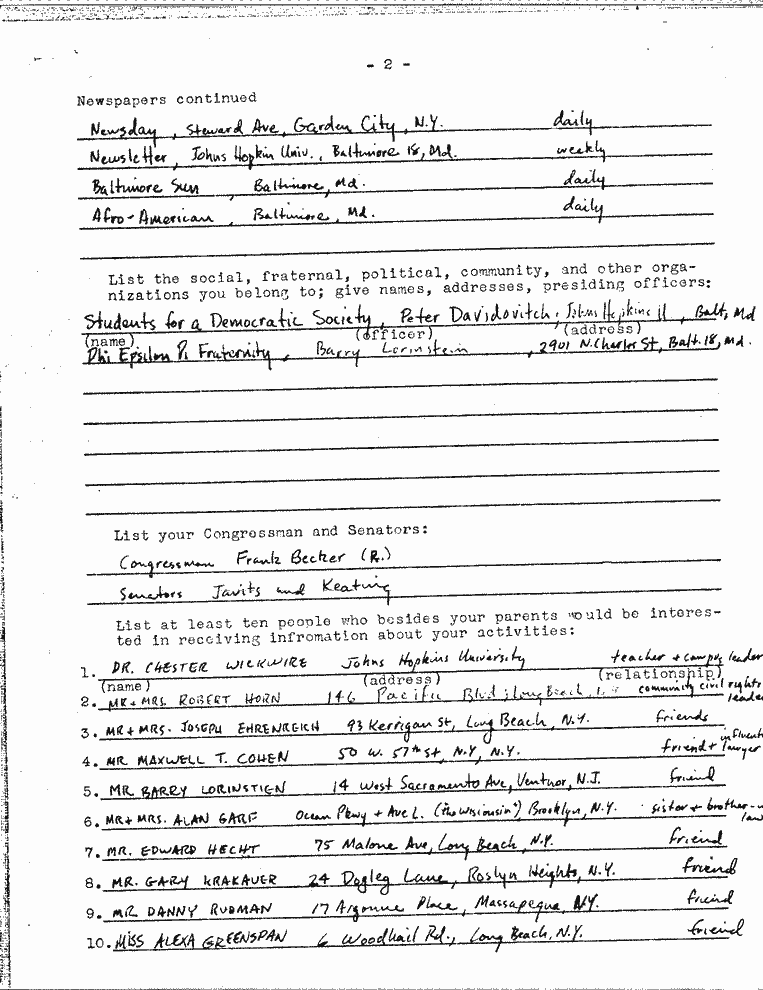 - 2 -
Newspapers continued
Newsday, Steward Ave, Garden City, N.Y. daily
Newsletter, Johns Hopkin Univ., Baltimore 18, Md. weekly
Baltimore Sun, Baltimore, Md. daily
Afro-American, Baltimore, Md. daily
List the social, fraternal, political, community, and other orga-
nizations you belong to; give names, addresses, presiding officers:
Students for a Democratic Society, Peter Davidovitch, Johns Hopkins U, Balt, Md
(name) (officer) (address)
Phi Epsilon Pi Fraternity, Barry Lorinstein, 2901 N. Charles St, Balt. 18, Md.
List your Congressman and Senators:
Congressman Frank Becker (R.)
Senators Javits and Keating
List at least ten people who besides your parents would be interes-
ted in receiving infromation about your activities:
1. DR. CHESTER WICKWIRE Johns Hopkins University teacher + campus leader
(name) (address) (relationship)
2. MR + MRS. ROBERT HORN 146 Pacific Blvd Long Beach, community civil rights leader
3. MR + MRS. JOSEPH EHRENREICH 93 Kerrigan St, Long Beach, N.Y. friends
4. MR MAXWELL T. COHEN 50 W. 57th St, N.Y, N.Y. friend + lawyer
5. MR BARRY LORINSTIEN 14 West Sacramento Ave, Ventnor, N.J. friend
6. MR + MRS. ALAN GARF Ocean Pkwy + Ave L. Brooklyn, N.Y. sister + brother-
7. MR. EDWARD HECHT 75 Malone Ave, Long Beach, N.Y. friend
8. MR. GARY KRAKAUER 24 Dogleg Lane, Roslyn Heights, N.Y. friend
9. MR DANNY RUDMAN 17 Argonne Place, Massapequa, N.Y. friend
10. MISS ALEXA GREENSPAN 6 Woodhail Rd., Long Beach, N.Y. friend